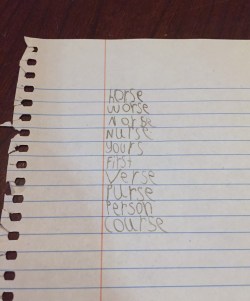 horse
worse
Norse
Nurse
yours
first
Verse
Purse
Person
Course